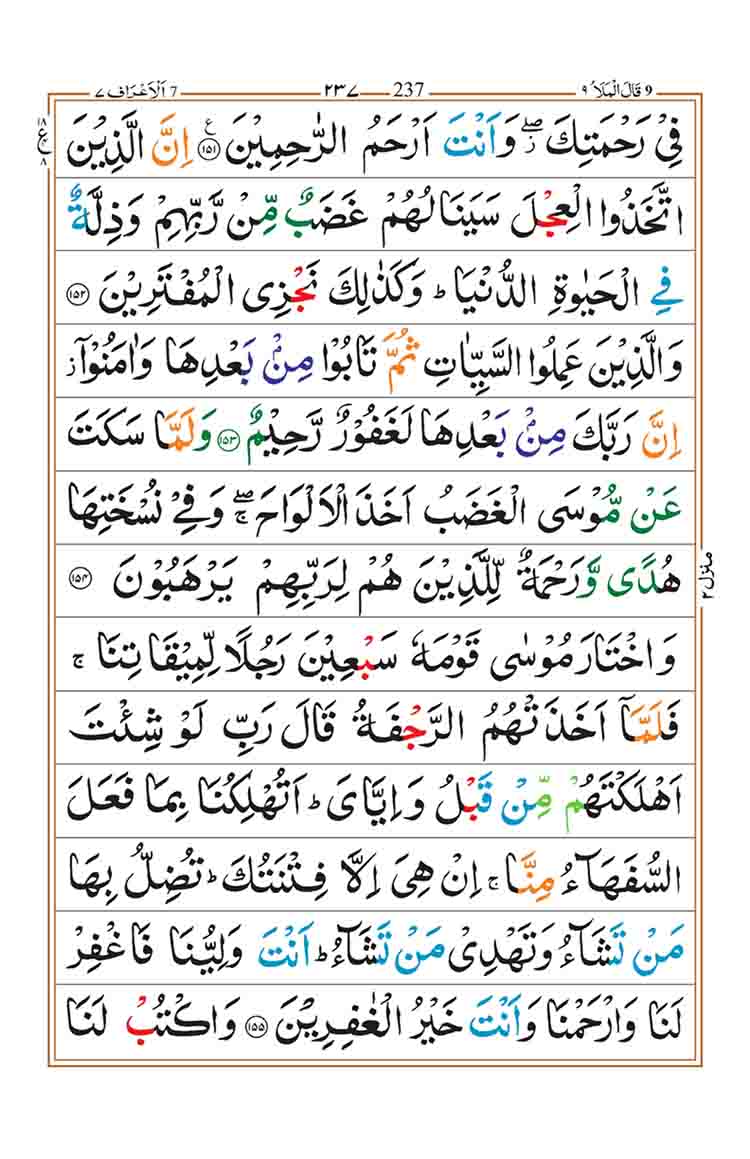 ٧ اَلْاَعْرَاف 7 ٢٣٧ 237 قَالَ الْمَلَاُ ٩ 9
فِيْ رَحْمَتِكَ ۖ٘ وَاَنْتَ اَرْحَمُ الرّٰحِمِيْنَ ۧ﴿۱۵۱﴾ اِنَّ الَّذِيْنَ
اتَّخَذُوا الْعِجْلَ سَيَنَالُهُمْ غَضَبٌ مِّنْ رَّبِّهِمْ وَذِلَّةٌ
فِي الْحَيٰوةِ الدُّنْيَا ؕ وَكَذٰلِكَ نَجْزِي الْمُفْتَرِيْنَ ﴿۱۵۲﴾
وَالَّذِيْنَ عَمِلُوا السَّيِّاٰتِ ثُمَّ تَابُوْا مِنْۢ بَعْدِهَا وَاٰمَنُوْۤا ؗ
اِنَّ رَبَّكَ مِنْۢ بَعْدِهَا لَغَفُوْرٌ رَّحِيْمٌ ﴿۱۵۳﴾ وَلَمَّا سَكَتَ
عَنْ مُّوْسَى الْغَضَبُ اَخَذَ الْاَلْوَاحَ ۖۚ وَفِيْ نُسْخَتِهَا
هُدًى وَّرَحْمَةٌ لِّلَّذِيْنَ هُمْ لِرَبِّهِمْ يَرْهَبُوْنَ ﴿۱۵۴﴾
وَاخْتَارَ مُوْسٰى قَوْمَهٗ سَبْعِيْنَ رَجُلًا لِّمِيْقَاتِنَا ۚ
فَلَمَّاۤ اَخَذَتْهُمُ الرَّجْفَةُ قَالَ رَبِّ لَوْ شِئْتَ
اَهْلَكْتَهُمْ مِّنْ قَبْلُ وَاِيَّايَ ؕ اَتُهْلِكُنَا بِمَا فَعَلَ
السُّفَهَآءُ مِنَّا ۚ اِنْ هِيَ اِلَّا فِتْنَتُكَ ؕ تُضِلُّ بِهَا
مَنْ تَشَآءُ وَتَهْدِيْ مَنْ تَشَآءُ ؕ اَنْتَ وَلِيُّنَا فَاغْفِرْ
لَنَا وَارْحَمْنَا وَاَنْتَ خَيْرُ الْغٰفِرِيْنَ ﴿۱۵۵﴾ وَاكْتُبْ لَنَا
١٨ ع ٨
منزل ٢